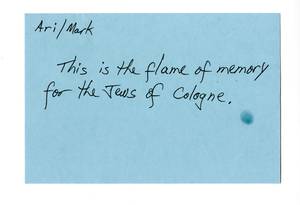 Ari/Mark
This is the flame of memory
for the Jews of Cologne.